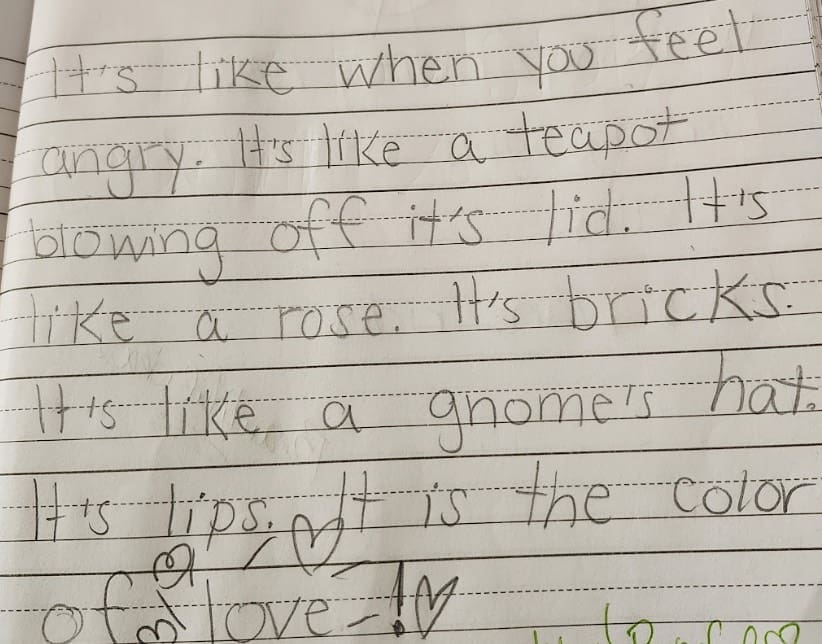 It's like when you feel
angry. It's like a teapot
blowing off it's lid. It's
like a rose. It's bricks.
It's like a gnome's hat.
It's lips. It is the color
of love-!